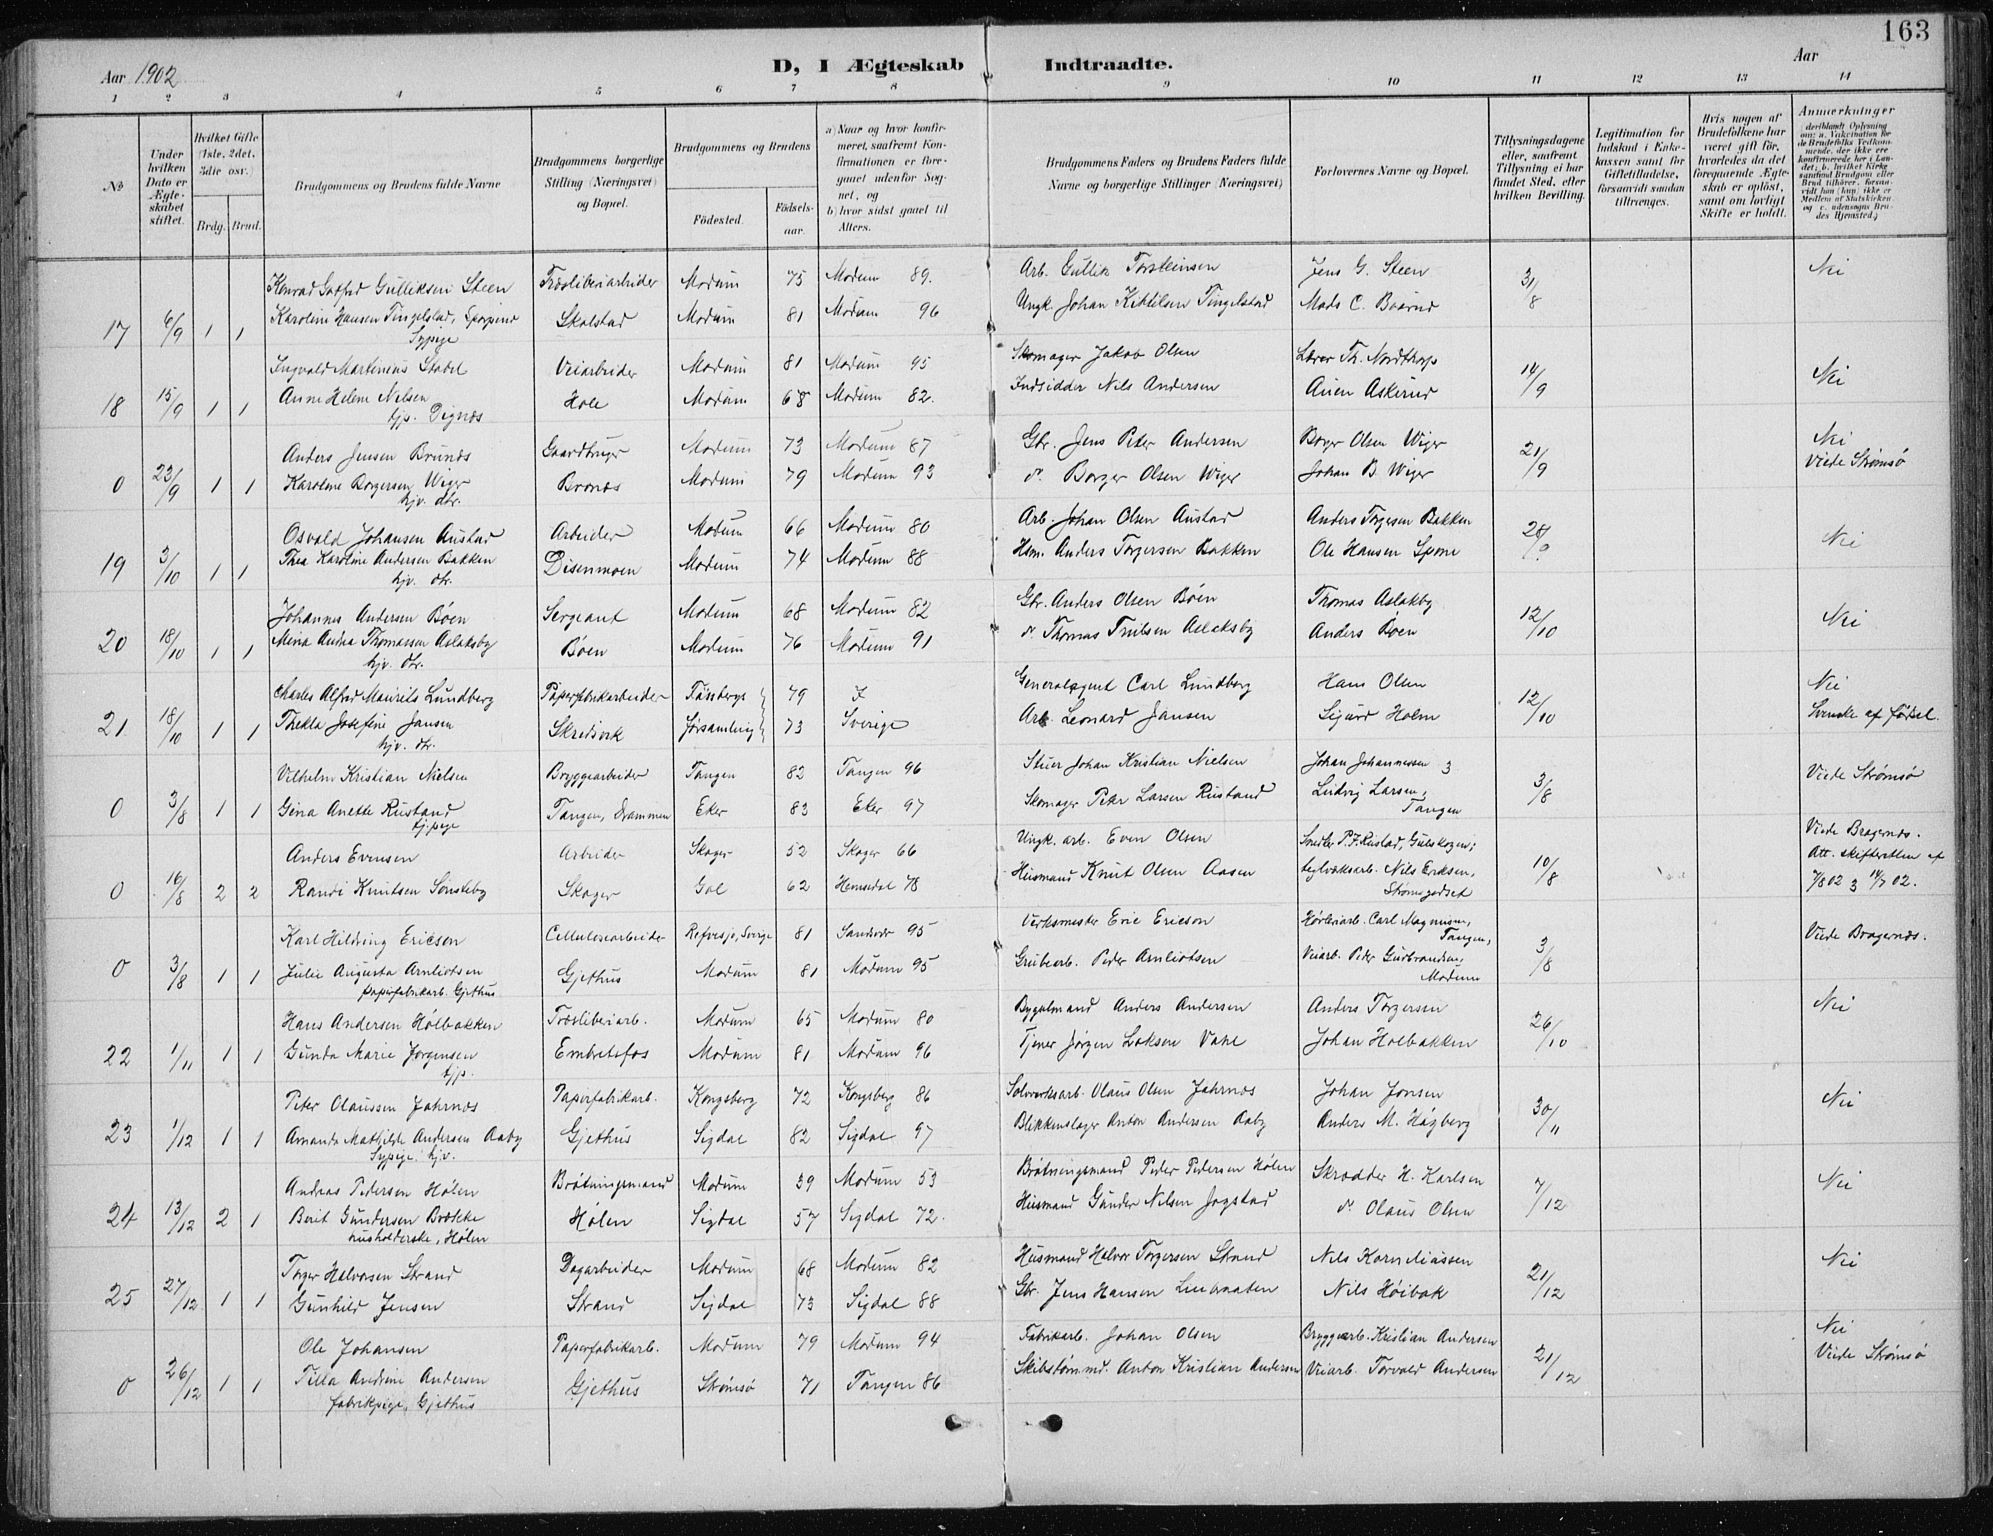 163
Aar 1902
D, I Ægteskab Indtraadte.
Aar
1 2 3 4 5 6 7 8 9 10 11 12 13 14
No
Under hvilken Dato er Ægteskabet stiftet.
Hvilket Gifte (1ste, 2det, 3die osv.)
Brdg. Brud.
Brudgommens og Brudens fulde Navne
Brudgommens borgerlige Stilling (Næringsvei) og Bopæl.
Brudgommens og Brudens
Födested. Födsels-aar.
a) Naar og hvor konfirmeret, saafremt Konfirmationen er foregaaet udenfor Sognet, og b) hvor sidst gaaet til Alters.
Brudgommens Faders og Brudens Faders fulde Navne og borgerlige Stillinger (Næringsvei)
Forlovernes Navne og Bopæl.
Tillysningsdagene eller, saafremt Tillysning ei har fundet Sted, efter hvilken Bevilling.
Legitimation for Indskud i Enkekassen samt for Giftetilladelse, forsaavidt saadan tiltrænges.
Hvis nogen af Brudefolkene har været gift før, hvorledes da det foregaaende Ægteskab er oplöst, samt om lovligt Skifte er holdt.
Anmerkninger
Konrad Gotfred Gulliksen Steen Træsliberiarbeider Modum 75 Modum 89. Arb. Gullik Torsteinsen Jens G. Steen 31/8 Nei
17 6/9 1 1 Karoline Hansen Tingelstad, Skalstad Modum 81 Modum 96 Ungk. Johan Kittilsen Tingelstad Mads C. Baarud
Sypige
Ingvald Martinius Stabel Veiarbeider Modum 81 Modum 95 Skomager Jakob Olsen Lærer Th. Nordtorp 14/9 Nei
18 15/9 1 1 Anne Helene Nelsen Hole Modum 68 Modum 82. Indsidder Nils Andersen Auen Askerud
tjp. Dignæs
Anders Jensen Brunæs Gaardbruger Modum 73 Modum 87 Gbr. Jens Peder Andersen Borger Olsen Wiger 21/9 Nei
0 23/9 1 1 Karoline Borgersen Wiger Modum 79 Modum 93 do Borger Olsen Wiger Johan B. Wiger Viede Strømsø
hjv. dtr.
Osvald Johansen Austad Arbeider Modum 66 Modum 80 Arb. Johan Olsen Austad Anders Torgersen Bakken 28/9 Nei
19 3/10 1 1 Thea Karoline Andersen Bakken Disenmoen Modum 74 Modum 88 Hsm. Anders Torgersen Bakken Ole Hansen Spone
hjv. dtr.
Johannes Andersen Bøen Sergeant Modum 68 Modum 82 Gbr. Anders Olsen Bøen Thomas Aslakby 12/10 Nei
20 18/10 1 1 Mina Andrea Thomassen Aslaksby Bøen Modum 76 Modum 91 do Thomas Truilsen Aslaksby Anders Bøen
hjv. dtr.
Charles Alfred Maurits Lundberg Papirfabrikarbeider Tønsbergs 79 I Generalagent Carl Lundberg Hans Olsen 12/10 Nei
21. 18/10 1 1 Thekla Josefine Jansen Skredsvik forsamling 73 Sverige Arb. Leonard Jansen Sigurd Holm Svenske af fødsel.
hjv. dtr.
Vilhelm Kristian Nielsen Bryggearbeider Tangen 82 Tangen 96 Stuer Johan Kristian Nielsen Johan Johannessen 3/8 Viede Strømsø
0 3/8 1 1 Gina Anette Rustand Tangen, Drammen Eker 83 Eker 97 Skomager Peter Larsen Rustand Ludvig Larsen, Tangen
tj.pige
Anders Evensen Arbeider Skoger 52 Skoger 66 Ungk. arb. Even Olsen Snedker P. F. Rustad, Gulskogen; 10/8 Viede Bragernæs.
0 16/8 2 2 Randi Knutsen Sønsteby Skoger Gol 62 Hemsedal 78 Husmand Knut Olsen Aasen teglværksarb. Nils Eriksen, Strømsgodset Att. skifteretten af 7/8 02 & 14/7 02.
Karl Hildring Ericson Cellulosearbeider Refvesjø, Sverige 81 Sandsvær 95 Verksmester Eric Ericson Høvleriarb. Carl Magnusen, Tangen, 3/8 Viede Bragernæs.
0 3/8 1 1 Julie Augusta Arnliotsen Gjethus Modum 81 Modum 95 Grubearb. Peder Arnliotsen Veiarb. Peter Gudbrandsen, Modum
Papirfabrikarb. Gjethus
Hans Andersen Hølbakken Træsliberiarb. Modum 65 Modum 80 Bygselmand Anders Andersen Anders Torgersen 26/10 Nei
22 1/11 1 1 Gunda Marie Jørgensen Embretsfos Modum 81 Modum 96 Tjener Jørgen Johan Holbakken
tjp.
Peter Olaussen Jahrnæs Papirfabrikarb. Kongsberg 72 Kongsberg 86 Sølvverksarb. Olaus Olsen Jahrnæs Johan Jonsen 30/11 Nei
23 1/12 1 1 Amanda Mathilde Andersen Aaby Gjethus Sigdal 82 Sigdal 97 Blikkenslager Anton Andersen Aaby Anders M. Høgberg
Sypige. hjv.
Andreas Pedersen Hølen Brøtningsmand Modum 39 Modum 53 Brøtningsmand Peder Pedersen Hølen Skrædder H. Karlsen 7/12 Nei
24 13/12 2 1 Berit Gundersen Brække Hølen Sigdal 57 Sigdal 72. Husmand Gunder Nilsen Jogstad do Olaus Olsen
husholderske, Hølen
Torger Halvorsen Strand Dagarbeider Modum 68 Modum 82 Husmand Halvor Torgersen Strand Nils Korneliassen 21/12 Nei
25 27/12 1 1 Gunhild Jensen Strand Sigdal 73 Sigdal 88 Gbr. Jens Hansen Nils Høibak
Ole Johansen Papirfabrikarb. Modum 79 Modum 94 Fabrikarb. Johan Olsen Bryggearb. Kristian Andersen 21/12 Nei
0 26/12 1 1 Tilla Andrine Andersen Gjethus Strømsø 71 Tangen 86 Skibstømmd. Anton Kristian Andersen Veiarb. Torvald Andersen Viede Strømsø
fabrikpige, Gjethus